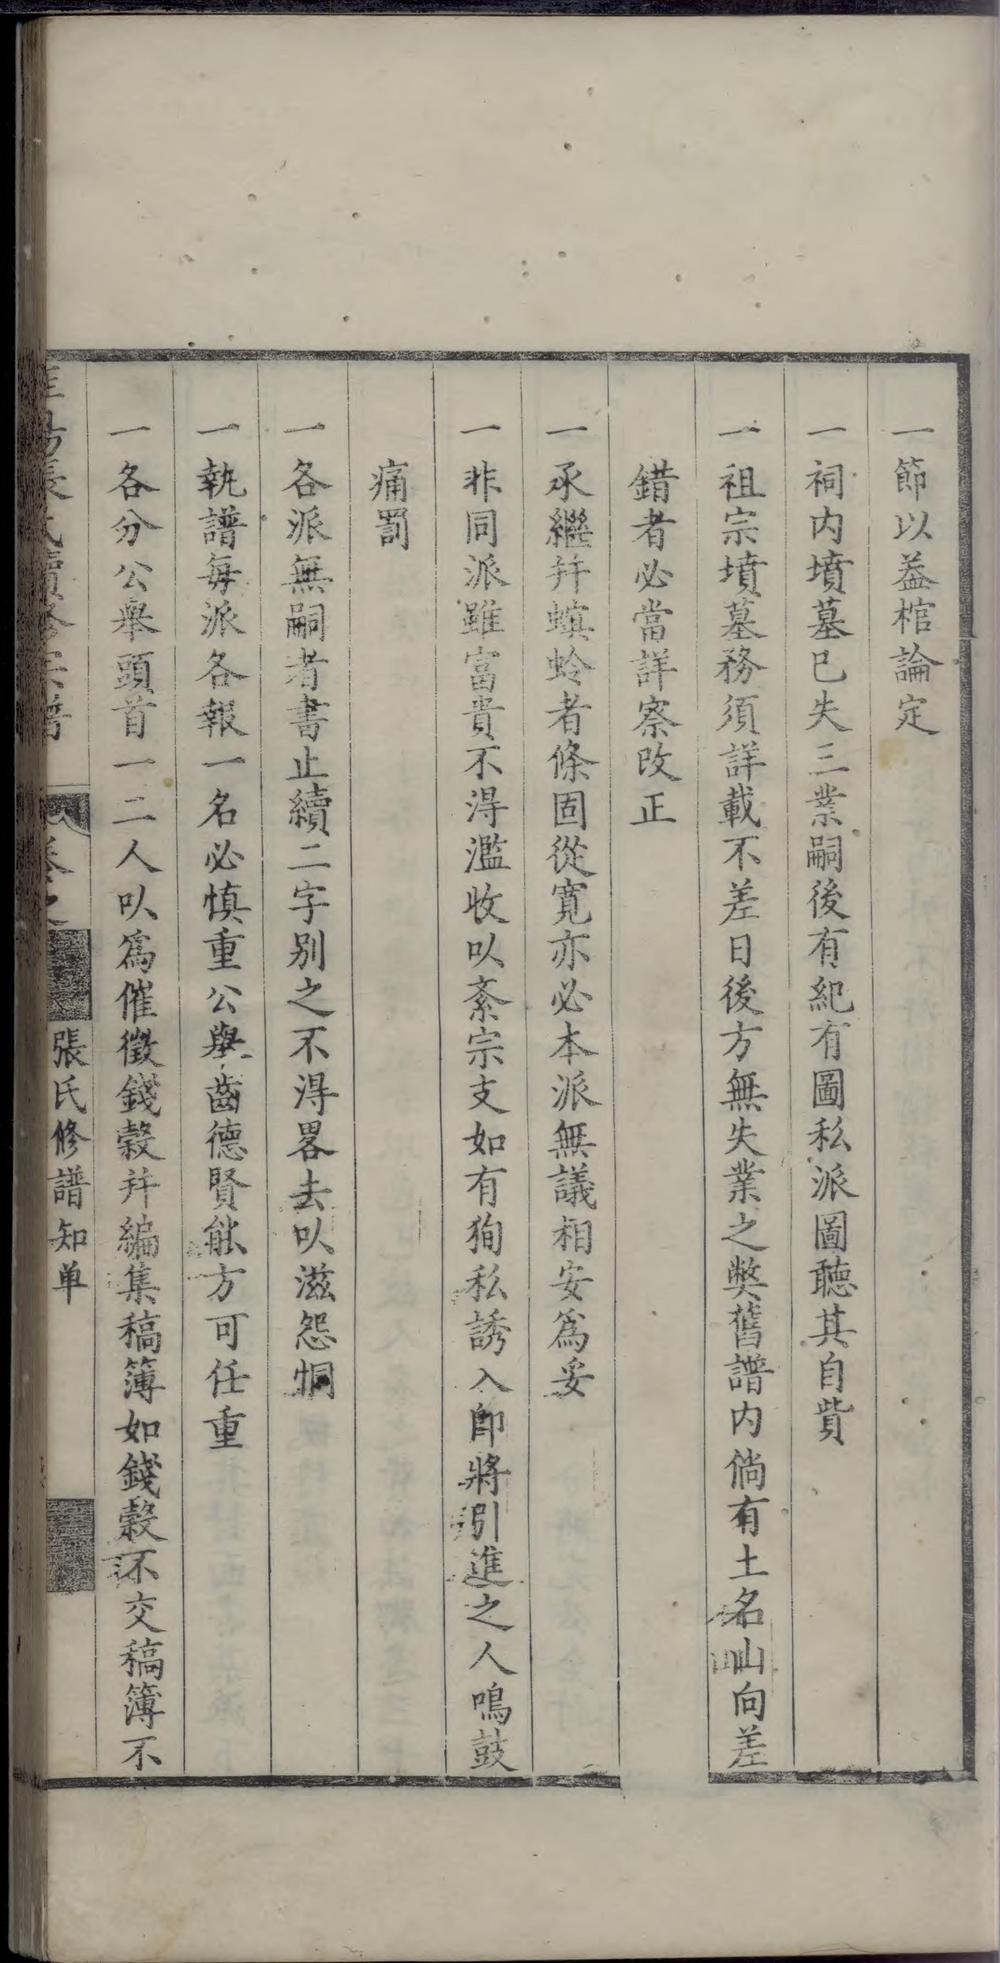 一節以葢棺論定
一祠内墳墓已失三業嗣後有紀有圖私派圖聽其自貲
一祖宗墳墓務須詳載不差日後方無失業之弊舊譜内倘有土名山向差
錯者必當詳察改正
一承繼并螟蛉者條固從寛亦必本派無議相安爲妥
一非同派雖富貴不淂濫收以紊宗支如有狥私誘入卽將引進之人鳴鼓
痛罰
一各派無嗣者書止續二字别之不淂畧去以滋怨恫
一執譜每派各報一名必慎重公舉齒德賢能方可任重
一各分公舉頭首一二人以爲催徵錢榖并編集稿簿如錢榖不交稿簿不
張氏續修宗譜 卷之 張氏修譜知单